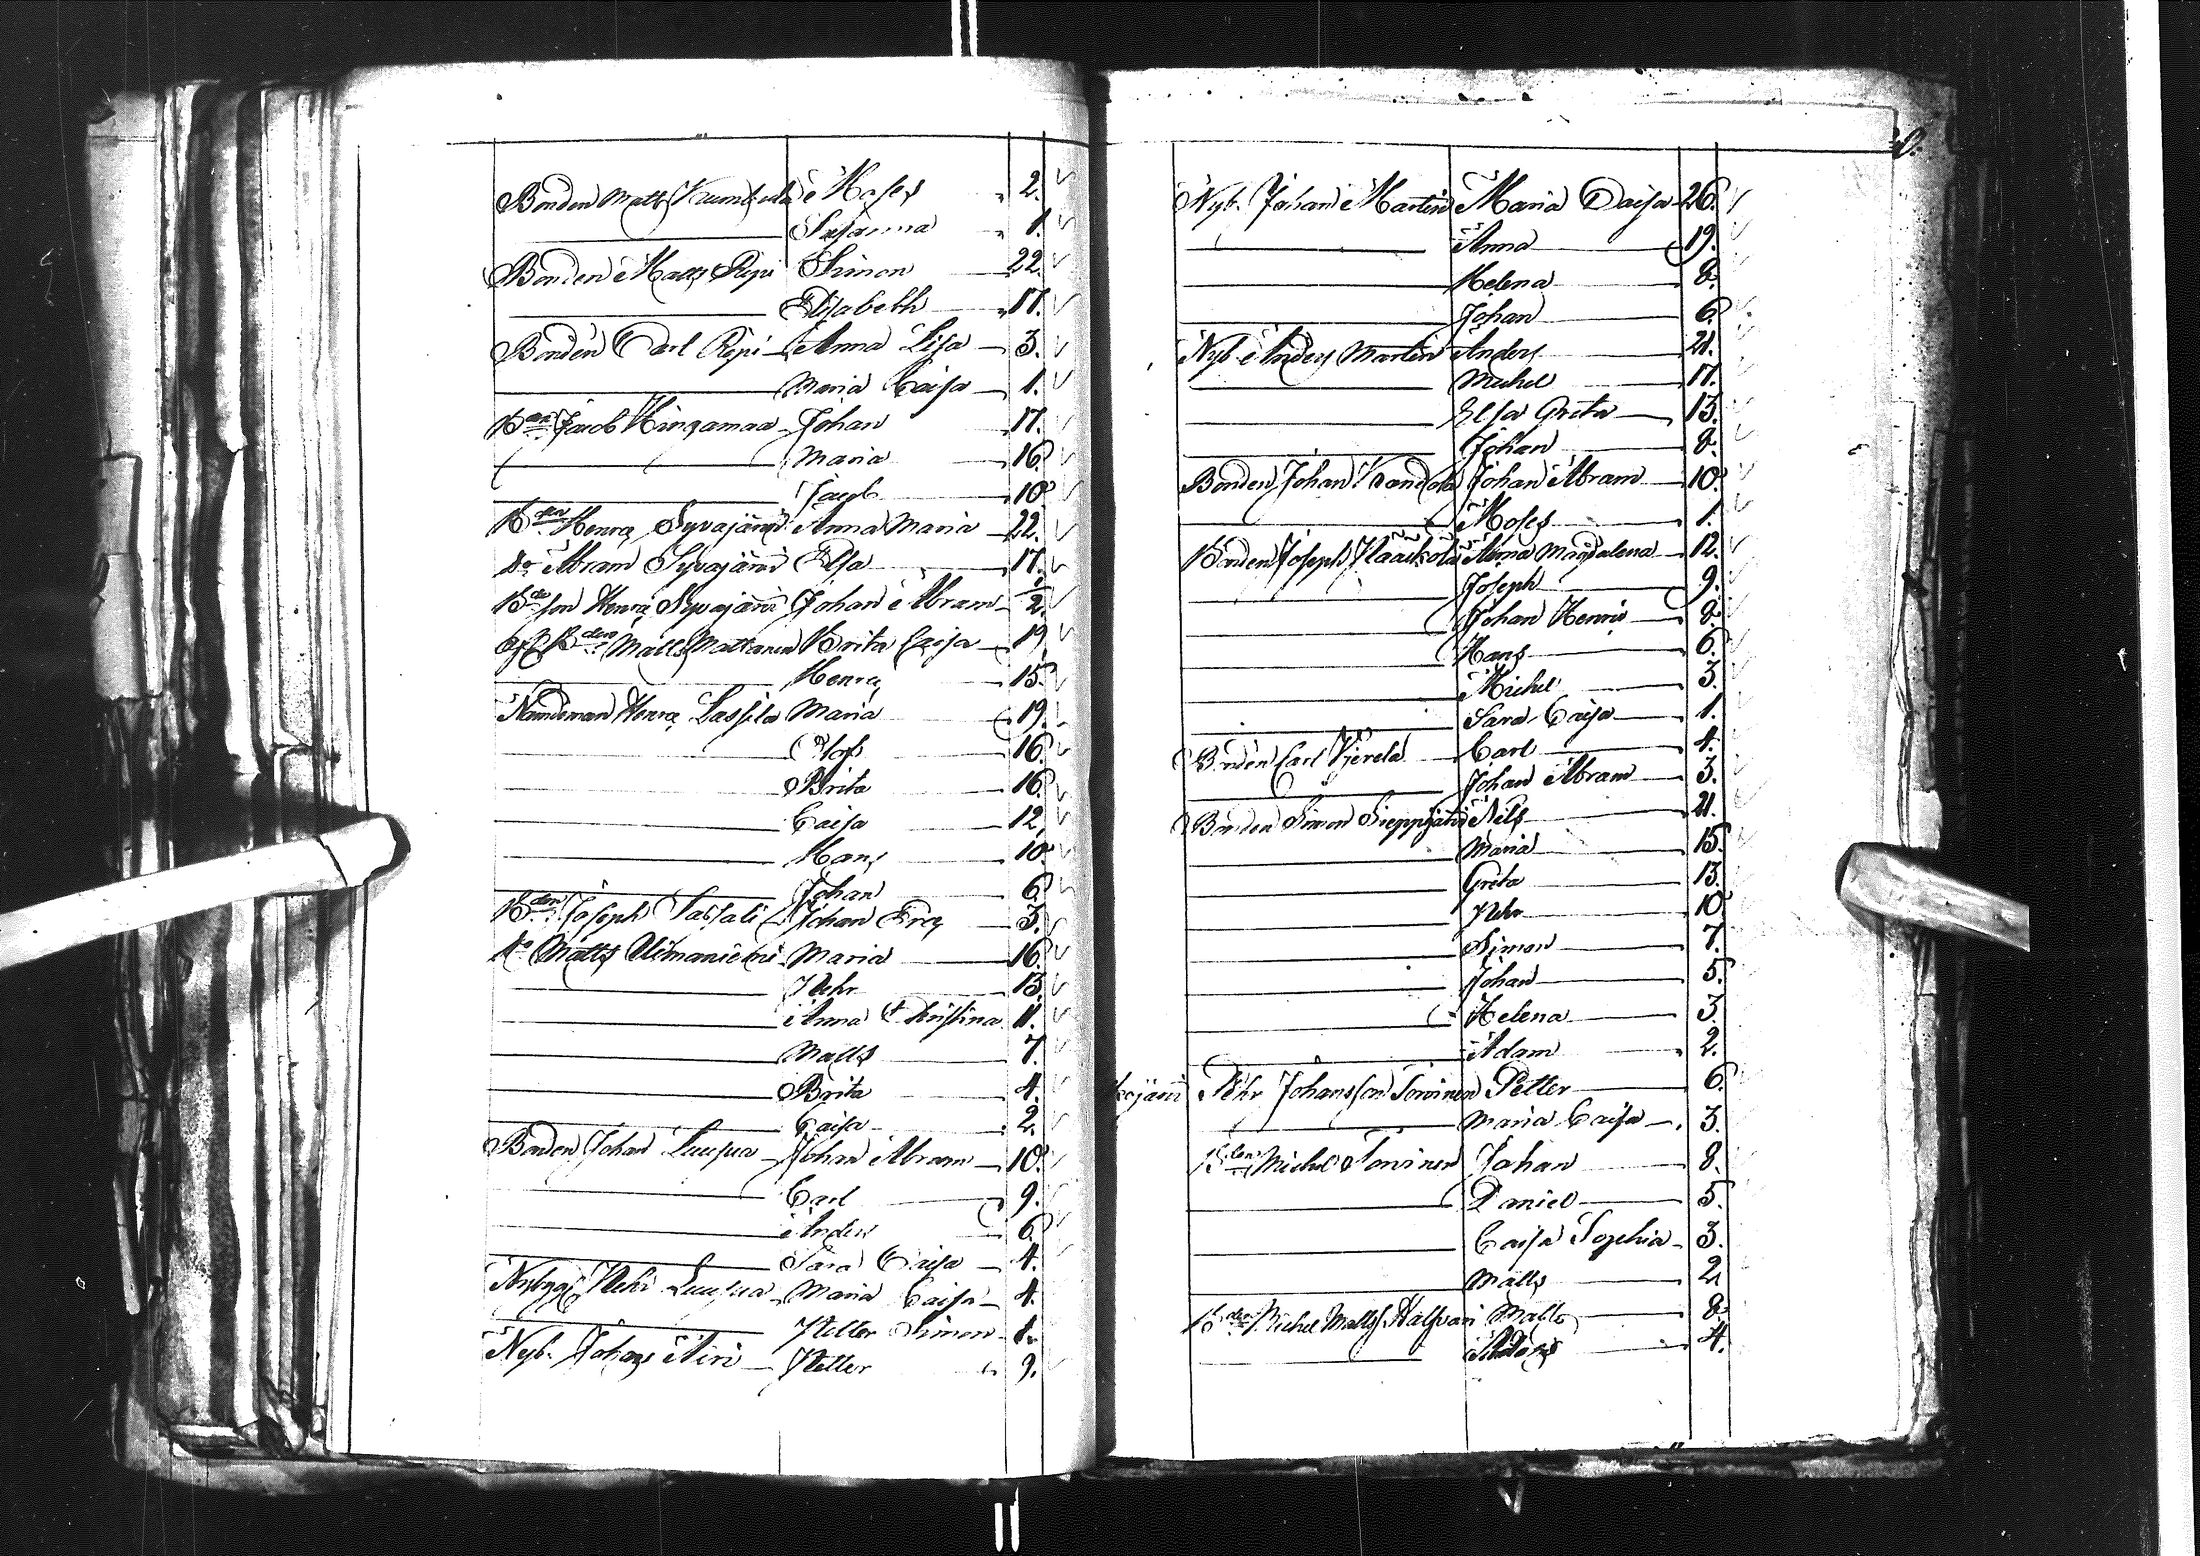 Bonden Matts Kumbula Moses 2.
Susanna 1.
Bonden Matts Repi Simon 22.
Elisabeth 17.
Bonden Carl Repi Anna Lisa 3.
Maria Caisa 1.
Bden Jacob Hingamaa Johan 17.
Maria 16.
Jacob 10
Bden Henric Syvajärvi Anna Maria 22.
do Abram Syvajärvi Elsa 17.
Bdeson Henric Syvajärvi Johan Abram 1/2.
Bden Matts Mattanen Brita Caisa 19.
Henric 15.
Nämdeman Henric Lassila Maria 19.
Olof 16.
Brita 16.
Caisa 12.
Hans 10
Johan 6.
Bden Joseph Johan Eric 3.
do Matts Ulimaniemi Maria 16.
Pehr 13.
Anna Christina 11.
Matts 7.
Brita 4.
Caisa 2.
Bonden Johan Luusua Johan Abram 10.
Carl 9.
Anders 6.
Sara Caisa 4.
Nybygg. Pehr Luusua Maria Caisa 4.
Petter Simon 1.
Nyb. Johan Niri Petter 9.
Nyb. Johan Martin Maria Caisa 26.
Anna 19.
Helena 8.
Johan 6.
Nyb Anders Martin Anders 21.
Michel 17.
Elsa Greta 13.
Johan 8.
Bonden Johan Kandola Johan Abram 10.
Moses 1.
Bonden Joseph Anna Magdalena 12.
Joseph 9.
Johan Henric 8.
Hans 6.
Michel 3.
Sara Caisa 1.
Bonden Carl Vjerela Carl 4.
Johan Abram 3.
Bonden Simon Sieppijärvi Nils 21.
Maria 15.
Greta 13.
Pehr 10.
Simon 7.
Johan 5.
Helena 3.
Adam 2.
Pehr Johansson Torvinen Petter 6.
Maria Caisa 3.
Bden Michel Torvinen Johan 8.
Daniel 5.
Caisa Sophia 3.
Matts 2.
Bde Michel Matts. Halfvari Matts 8.
4.